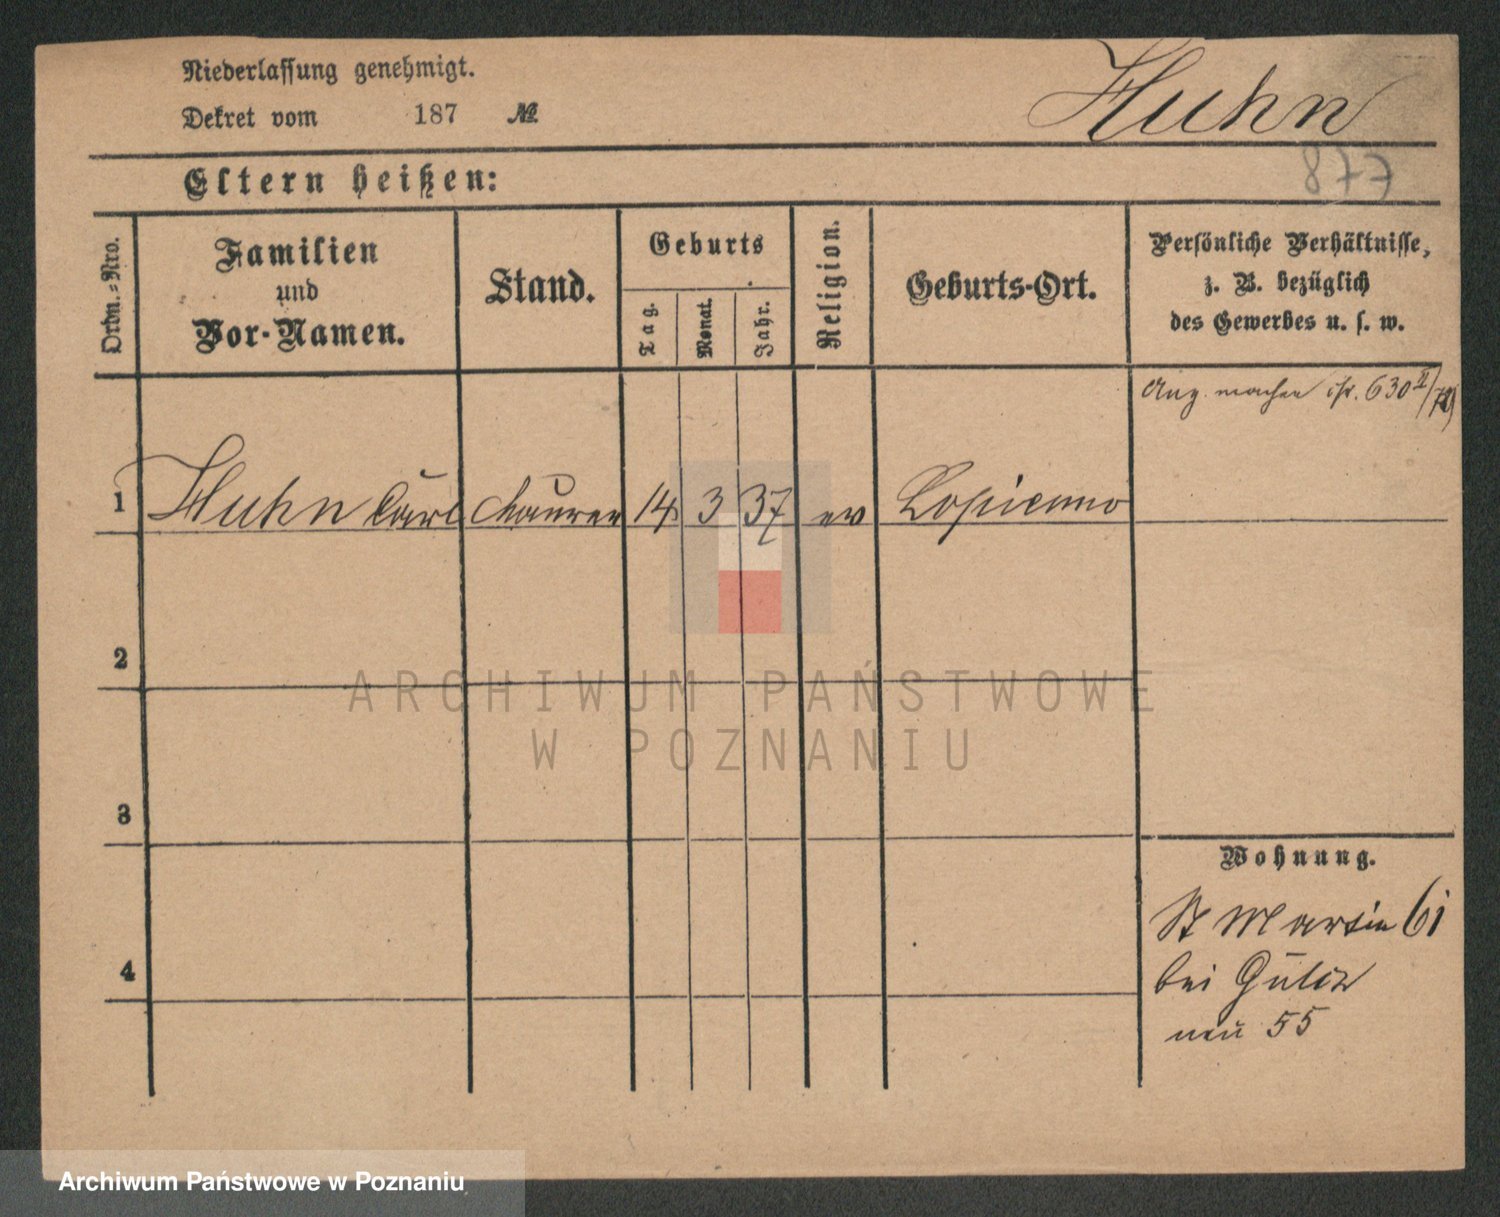 Niederlassung genehmigt.
Dekret vom 187 №
Huhn
877
Eltern heißen:
Ordn.-Nro.
Familien
und
Vor-Namen.
Stand.
Geburts
Tag.
Monat.
Jahr.
Religion.
Geburts-Ort.
Persönliche Verhältnisse,
z. B. bezüglich
des Gewerbes u. s. w.
630 II/
1 Huhn Carl Maurer 14 3 37 ev Lopienno
2
3
4
Wohnung.
St Martin 61
bei
neu 55
ARCHIWUM PAŃSTWOWE
W POZNANIU
Archiwum Państwowe w Poznaniu